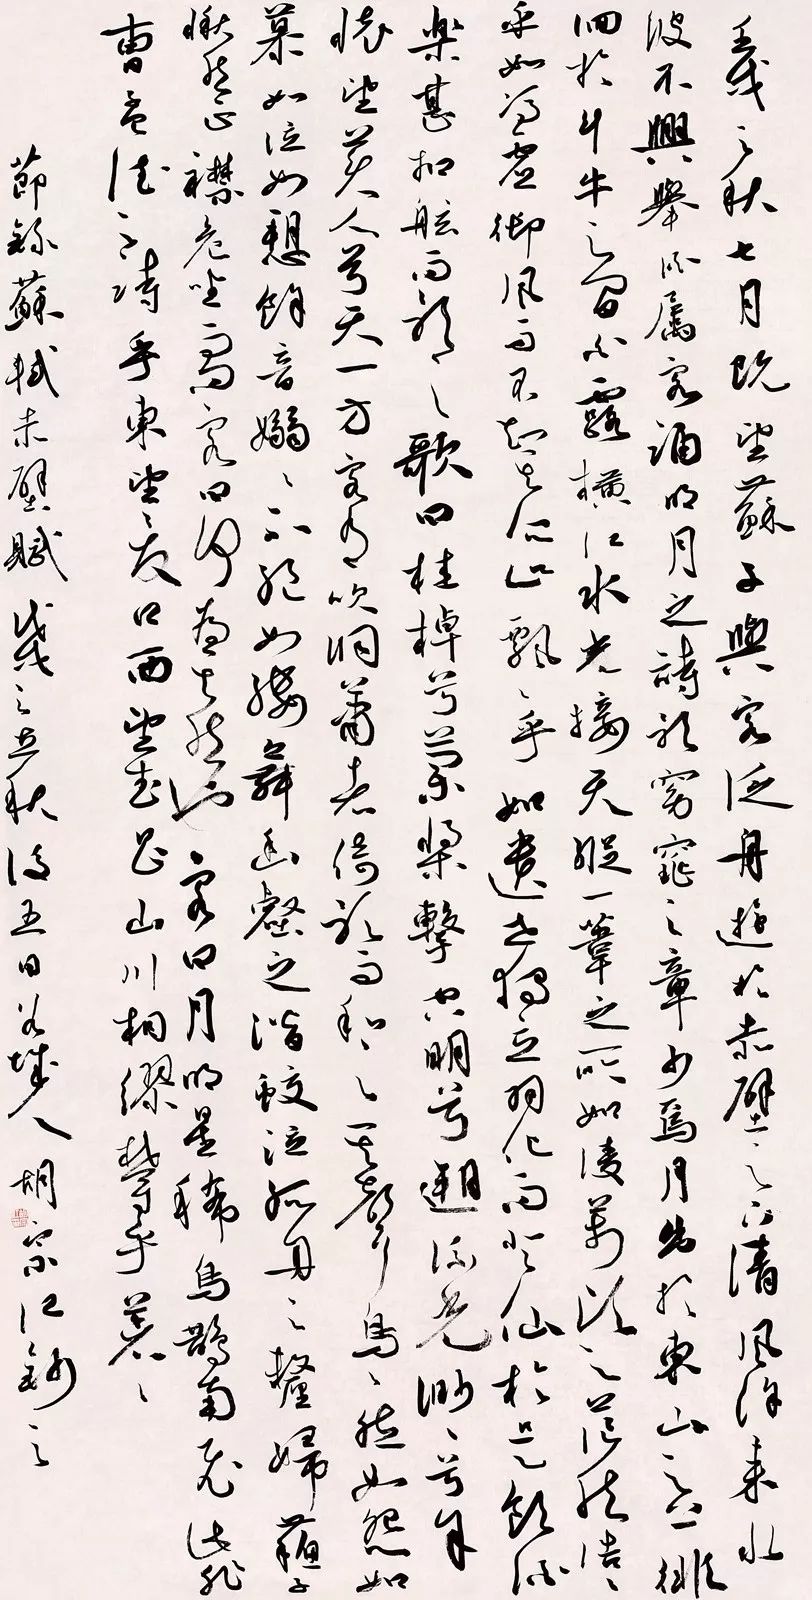 壬戌之秋七月既望蘇子與客泛舟遊於赤壁之下清風徐來水
波不興舉酒屬客誦明月之詩歌窈窕之章少焉月出於東山之上徘
徊於斗牛之間白露橫江水光接天縱一葦之所如凌萬頃之茫然浩〻
乎如馮虛御風而不知其所止飄〻乎如遺世獨立羽化而登仙於是飲酒
樂甚扣舷而歌之歌曰桂棹兮蘭槳擊空明兮遡流光渺〻兮予
懷望美人兮天一方客有吹洞簫者倚歌而和之其聲嗚〻然如怨如
慕如泣如愬餘音嫋〻不絕如縷舞幽壑之潛蛟泣孤舟之嫠婦蘇子
愀然正襟危坐而問客曰何為其然也客曰月明星稀烏鵲南飛此非
曹孟德之詩乎東望夏口西望武昌山川相繆鬱乎蒼〻
節錄蘇軾赤壁賦 之立秋後五日 城人胡宗江鈔之